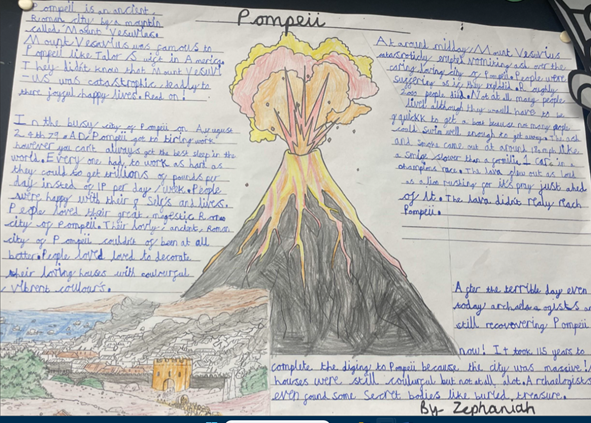 Pompeii
Pompeii is an ancient
Roman city by a mountain
called Mount Vesuvius.
Mount Vesuvius was famous to
Pompeii like Talor S wice in America.
They didn't know that Mount Vesuvi
-us was catastrophic, ready to
there joyful happy lives. Read on!
In the busy city of Pompeii on Auguast
24th 79. AD, Pompeii got to tiring work
however you can't always get the best sleep in the
world. Every one had to work as hard as
they could to get trillions of pounds per
day insted of 1P per day / week. People
were happy with their selfs and lives.
People loved their great, migestic Roman
city of Pompeii. Their lovley ancient Roman
city of Pompeii couldn't of been at all
better. People loved loved to decorate
their loving houses with coulourful
vibrent coulours.
At around midday, Mount Vesuvius
erupted vomiting ash over the
loving city of Pompeii. People were
suffering as it erupted. Roughly
people died. Not at all many people
lived although they would have to be
quickk to get a boat because not many people
could swim well enough to get away. The ash
and smoke came out at around 1 mph like
a smige slower than a formila 1 car in a
champions race. The lava flew out as loud
as a lion rushing for it's prey just ahed
of It. The lava didn't realy reach
Pompeii.
After the terrible day even
today archaeologists
still recovering Pompeii
now! It took us years to
complete the diging to Pompeii because the city was massive!
houses were still coulurful but not at all, alot. Archaelogists
even found some Secret bodies like buried treasure.
By Zephaniah